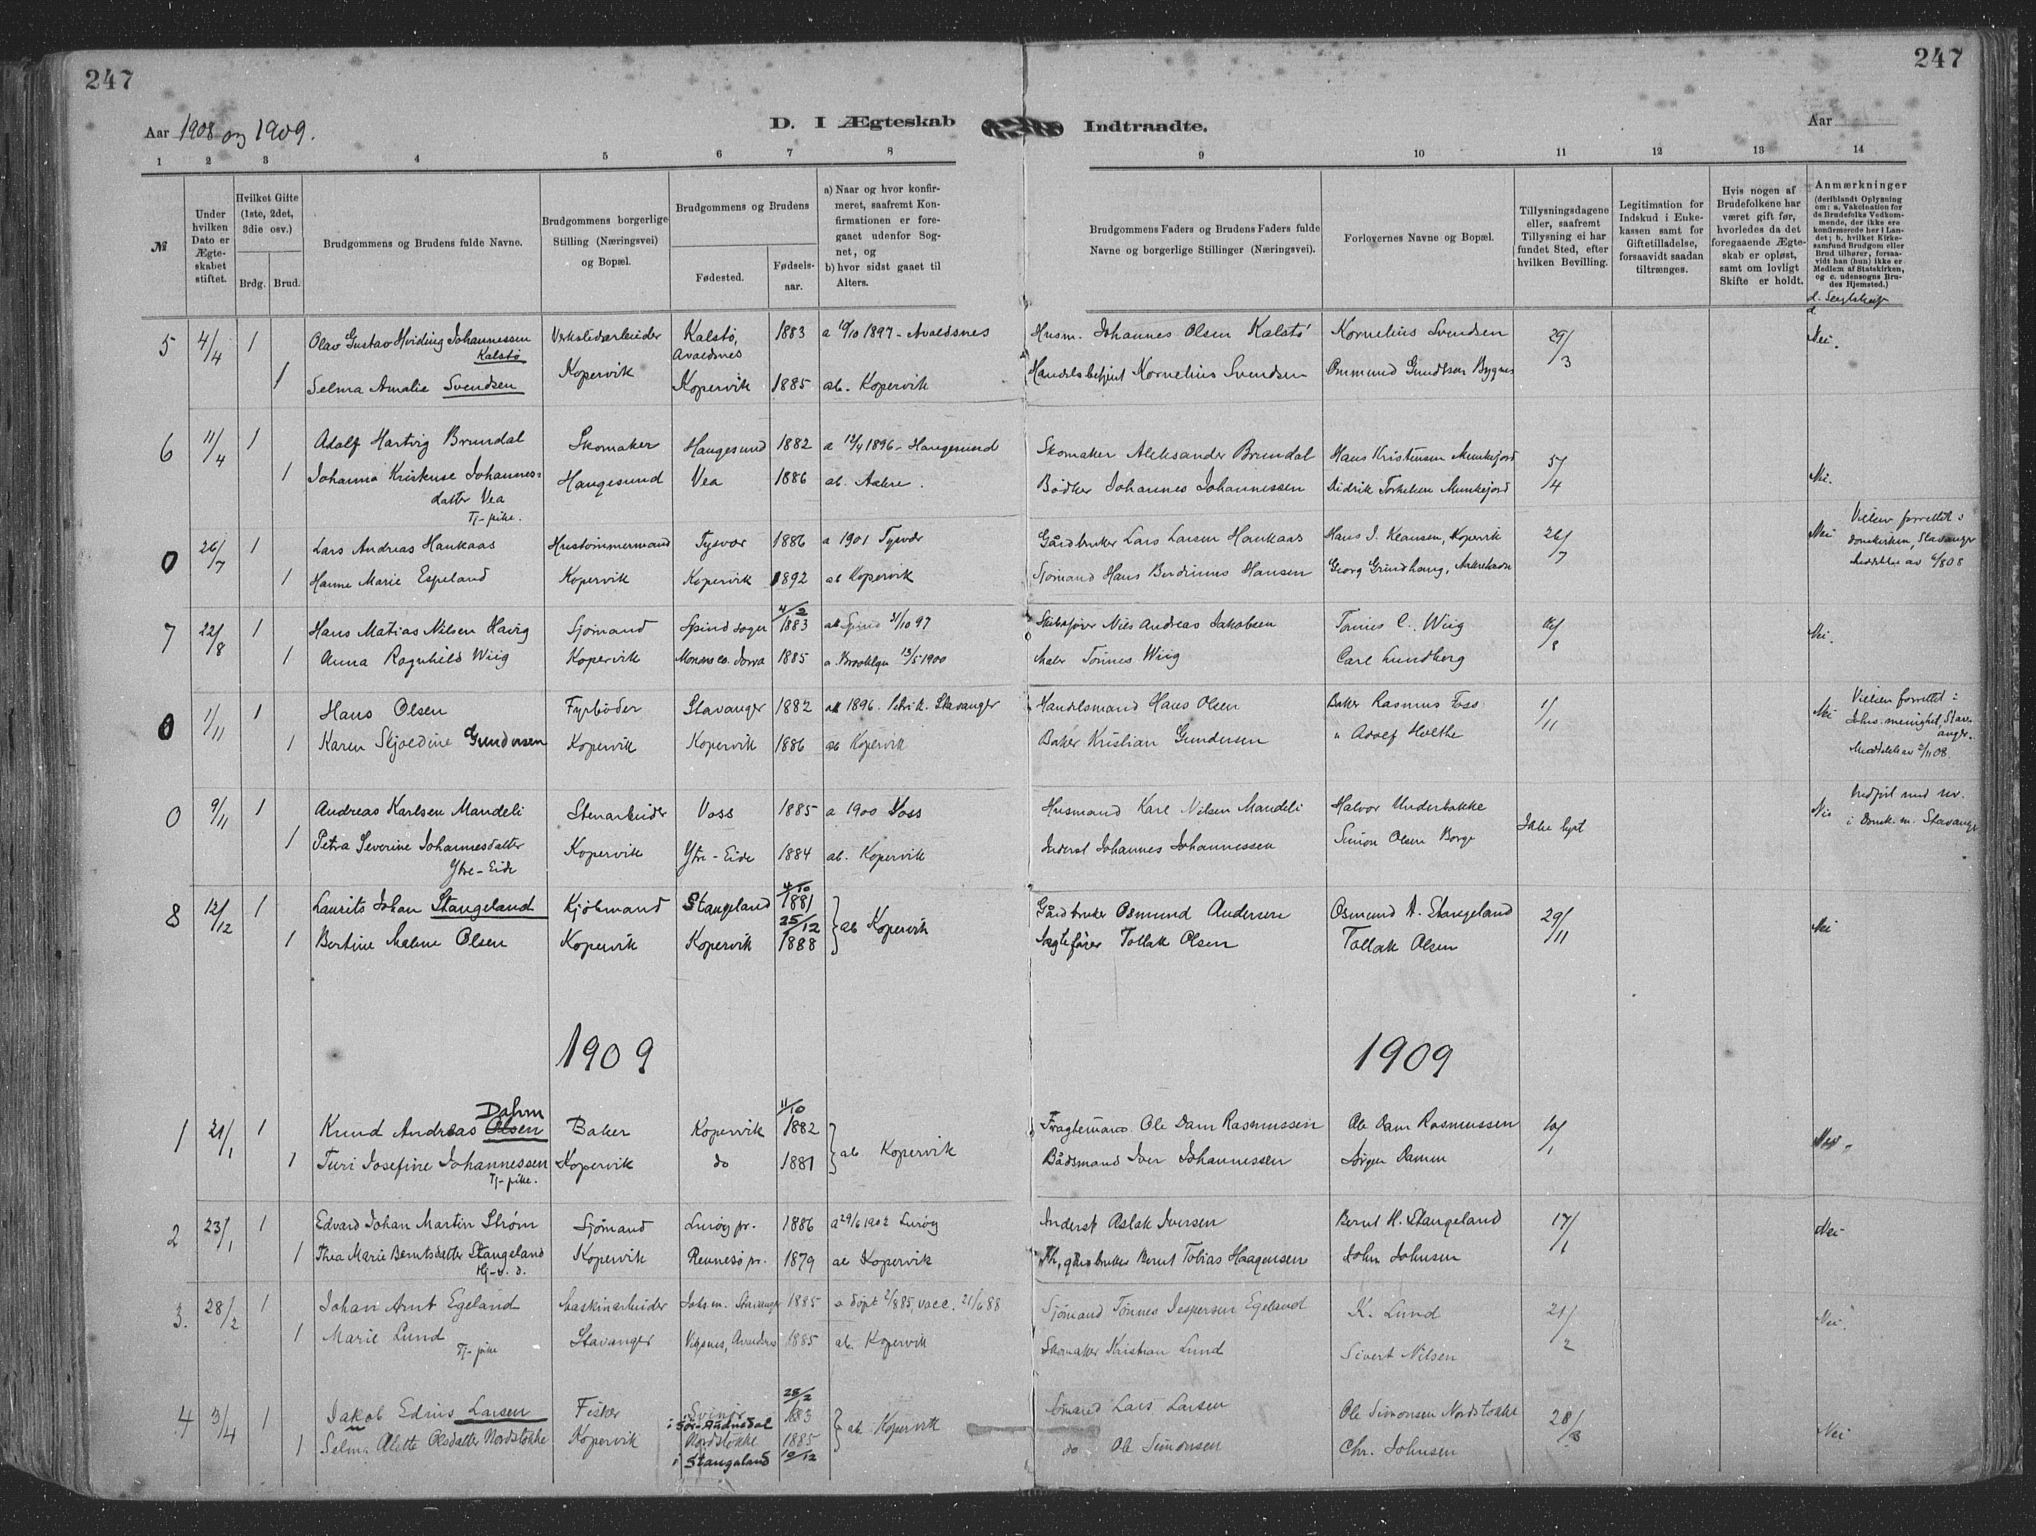 247
247
Aar 1908 og 1909.
D. I Ægteskab
Indtraadte.
Aar
1 2 3 4 5 6 7 8 9 10 11 12 13 14
№
Under hvilken Dato er Ægteskabet stiftet.
Hvilket Gifte (1ste, 2det, 3die osv.)
Brdg. Brud.
Brudgommens og Brudens fulde Navne.
Brudgommens borgerlige Stilling (Næringsvei) og Bopæl.
Brudgommens og Brudens
Fødested.
Fødselsaar.
a) Naar og hvor konfirmeret, saafremt Konfirmationen er foregaaet udenfor Sognet, og
b) hvor sidst gaaet til Alters.
Brudgommens Faders og Brudens Faders fulde Navne og borgerlige Stillinger (Næringsvei).
Forlovernes Navne og Bopæl.
Tillysningsdagene eller, saafremt Tillysning ei har fundet Sted, efter hvilken Bevilling.
Legitimation for Indskud i Enkekassen samt for Giftetilladelse, forsaavidt saadan tiltrænges.
Hvis nogen af Brudefolkene har været gift før, hvorledes da det foregaaende Ægteskab er opløst, samt om lovligt Skifte er holdt.
Anmærkninger (deriblandt Oplysning om: a. Vakcination for de Brudefolks Vedkommende, der ikke ere konfirmerede her i Landet; b. hvilket Kirkesamfund Brudgom eller Brud tilhører, forsaavidt han (hun) ikke er Medlem af Statskirken, og c. udensogns Brudes Hjemsted.)
d. Slegtskap
d
5 4/4 1 Olav Gustav Hviding Johannessen Verkstedsarbeider Kalstø, 1883 a 10/10 1897 - Avaldsnes Husm. Johannes Olsen Kalstø Kornelius Svendsen 29/3 Nei.
Kalstø Avaldsnes
1 Selma Amalie Svendsen Kopervik Kopervik 1885 ab. Kopervik Handelsbetjent Kornelius Svendsen Ommund Gundersen Bygnes
6 11/4 1 Adolf Hartvig Brundal Skomaker Haugesund 1882 a 12/4 1896 - Haugesund Skomaker Aleksander Brundal Hans Kristensen Munkejord 5/4
1 Johanna Kristense Johannes- Haugesund Vea 1886 ab. Aakre. Bødker Johannes Johannessen Didrik Torkelsen Munkejord Nei.
datter Vea
Tj-pike.
0 26/7 1 Lars Andreas Haukaas Hustømmermand Tysvær 1886 a 1901 Tysvær Gårdbruker Lars Larsen Haukaas Hans J. Klausen, Kopervik 26/7 Nei Vielsen forrettet i
domkirken, Stavanger
1 Hanne Marie Espeland Kopervik Kopervik 1892 ab Kopervik Sjømand Hans Berdinius Hansen Georg Grindhaug, Meddelt av 6/8 08
4/2
7 22/8 1 Hans Matias Nilsen Havig Sjømand Spind sogn 1883 ab Spind 31/10 97 Skibsfører Nils Andreas Jakobsen Tønnes C. Wiig 16/8 Nei.
1 Anna Ragnhild Wiig Kopervik Monona co. Jowa 1885 a. Brooklyn 13/5 1900 Maler Tønnes Wiig Carl Lundberg
0 1/11 1 Hans Olsen Fyrbøder Stavanger 1882 ab 1896. Petrik. Stavanger Handelsmand Hans Olsen Baker Rasmus Foss 1/11 Nei Vielsen forrettet i
Johs. menighet, Stavanger.
1 Karen Skjoldine Gundersen Kopervik Kopervik 1886 ab Kopervik Baker Kristian Gundersen " Adolf Holthe Meddelt av 2/11 08.
0 9/11 1 Andreas Karlsen Mandeli Stenarbeider Voss 1885 a 1900 Voss Husmand Karl Nilsen Mandeli Halvor Underbakke Ikke lyst Nei
i Domk. m. Stavanger
1 Petra Severine Johannesdatter Kopervik Ytre-Eide 1884 ab. Kopervik Inderst Johannes Johannessen Simon Olsen Borge
Ytre-Eide
4/10
8 12/12 1 Laurits Johan Stangeland Kjøbmand Stangeland 1881 Gårdbruker Osmund Andersen Osmund A. Stangeland 29/11 Nei
25/12 ab Kopervik
1 Bertine Malene Olsen Kopervik Kopervik 1888 Jagtefører Tollak Olsen Tollak Olsen
1909 1909
Dahm 11/10
1 21/1 1 Knud Andreas Olsen Baker Kopervik 1882 Fragtemand Ole Dam Rasmussen Ole Dam Rasmussen 10/1
ab Kopervik
1 Turi Josefine Johannessen Kopervik do 1881 Bådsmand Iver Johannessen Jørgen Damm Nei.
Tj-pike.
2 23/1 1 Edvard Johan Martin Strøm Sjømand Lurøy pr. 1886 a 29/6 1902 Lurøy Inderst Aslak Iversen Bernt H. Stangeland 17/1 Nei
1 Thea Marie Berntsdatter Stangeland Kopervik Rennesø pr. 1879 ab Kopervik Th, gårdbruker Bernt Tobias Haagensen John Johnsen
Hj-v. d.
3. 28/2 1 Johan Arnt Egeland Maskinarbeider Johs m. Stavanger 1885 a døpt 2/8 85, vacc. 21/6 88 Sjømand Tønnes Jespersen Egeland K. Lund 21/2 Nei
1 Marie Lund Stavanger Vigsnes, Avaldsnes 1885 ab. Kopervik Skomaker Kristian Lund Sivert Nilsen
Tj-pike
28/2
4 3/4 1 Jakob Edvin Larsen Fisker Svinør 1883 Smand Lars Larsen Ole Simonsen Nordstokke 28/3 Nei
i Sør-Audnedal ab Kopervik
1 Selma Alette Olsdatter Nordstokke Kopervik Nordstokke 1885 do Ole Simonsen Chr. Johnsen
i Stangeland 10/12